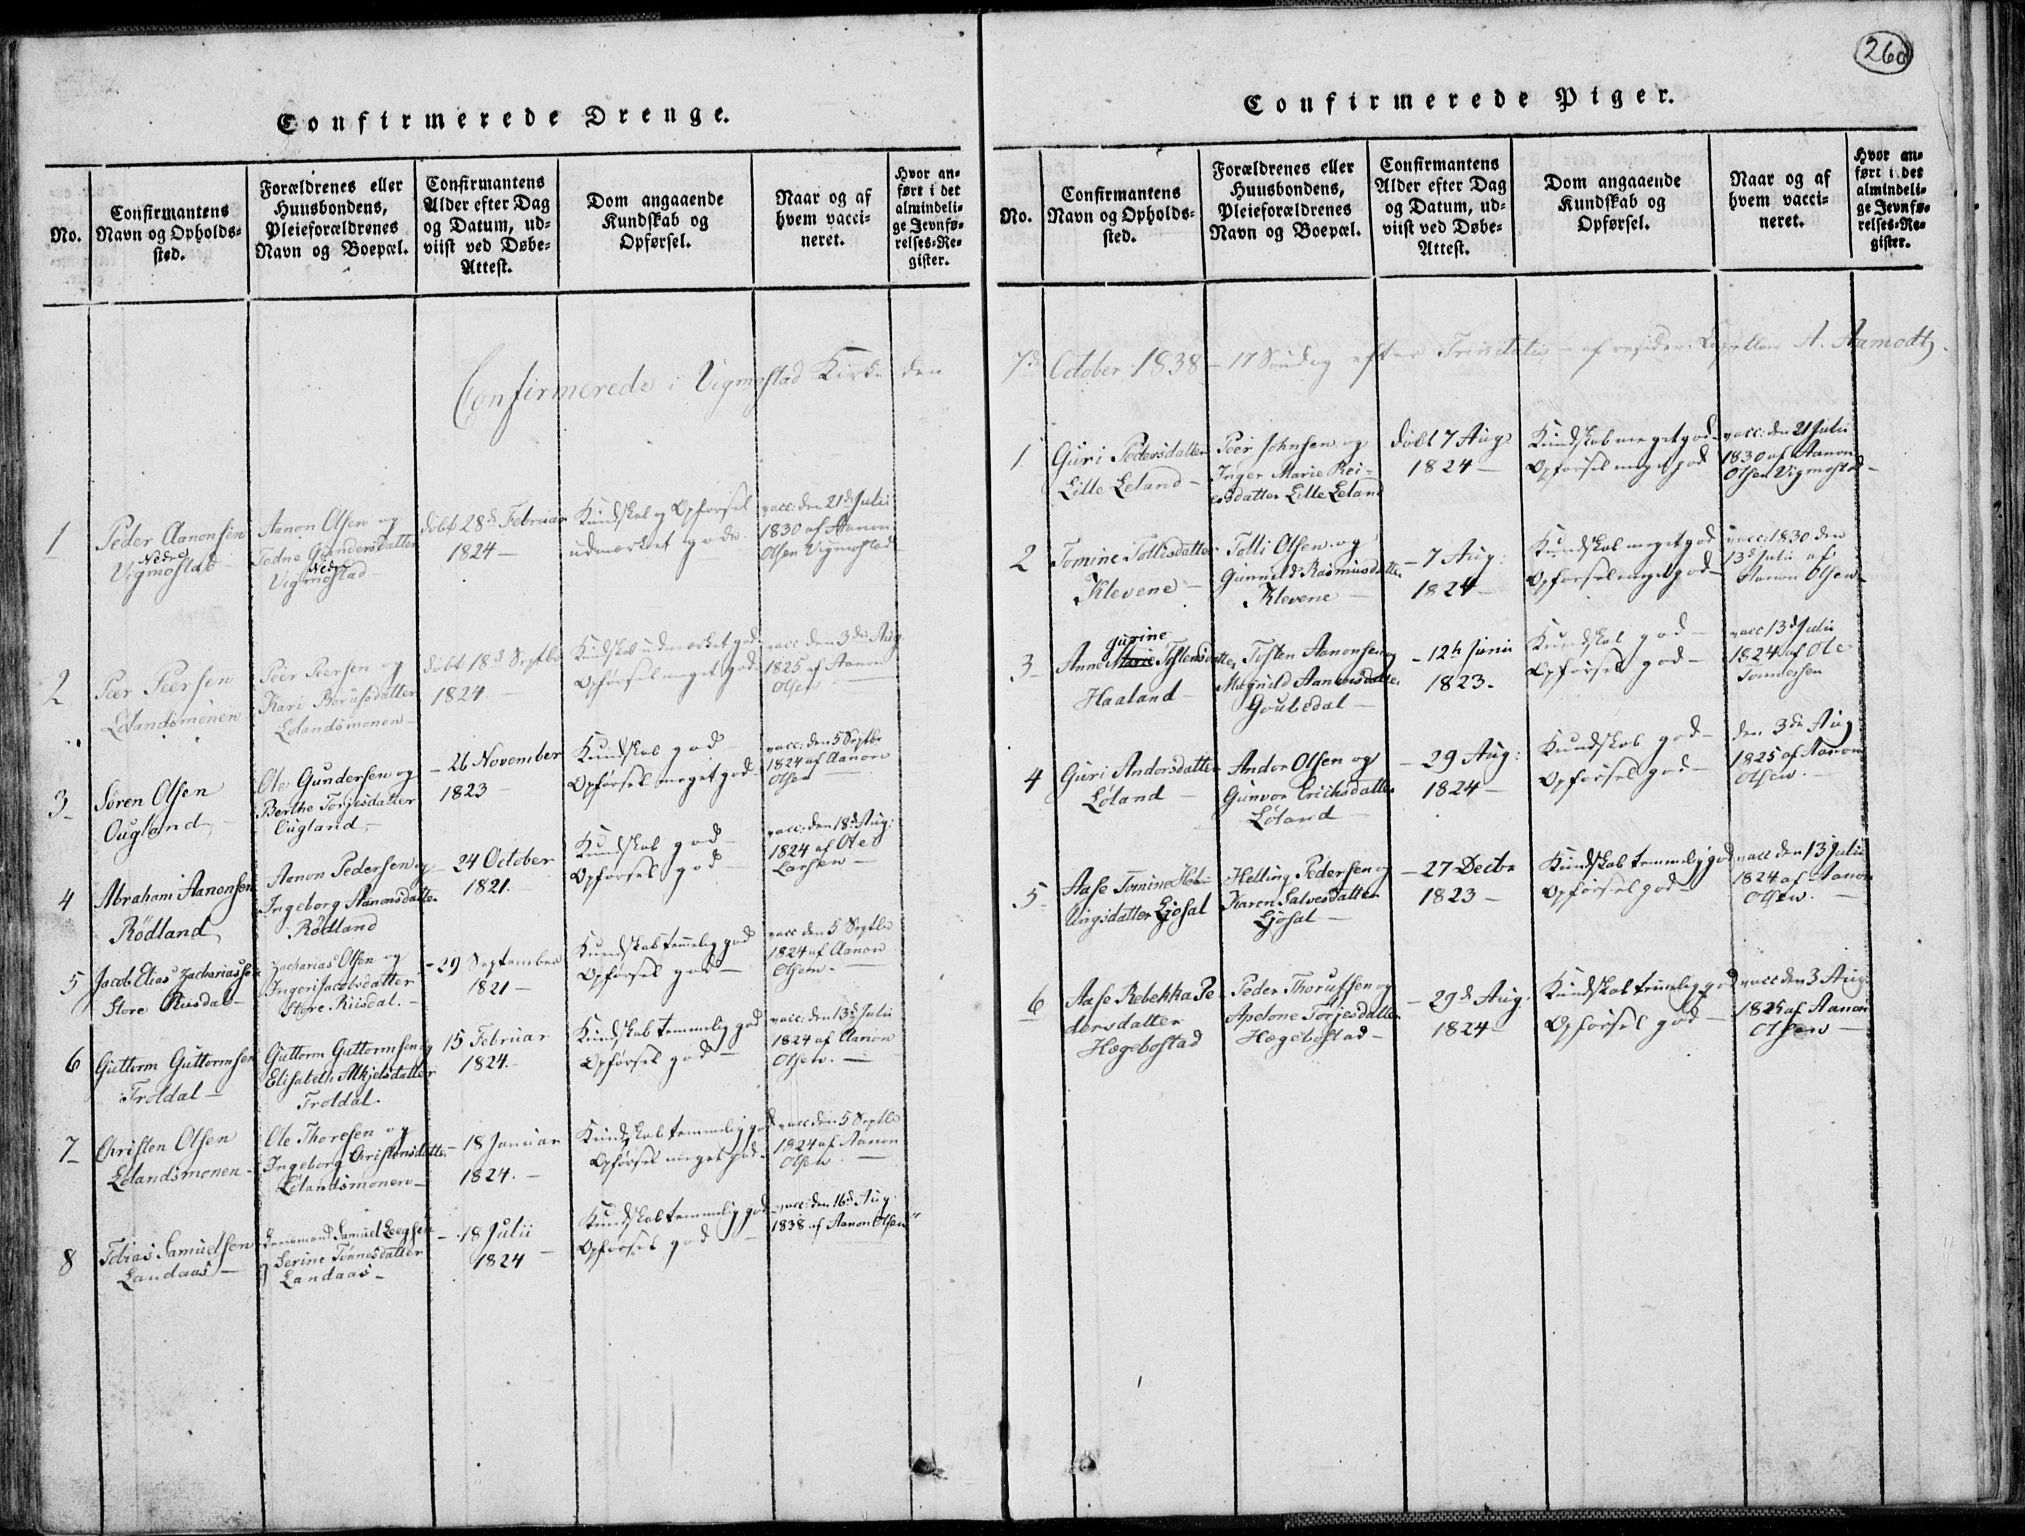 260
Confirmerede Drenge.
No.
Confirmantens
Navn og Opholds-
sted.
Forældrenes eller
Huusbondens,
Pleieforældrenes
Navn og Boepæl.
Confirmantens
Alder efter Dag
og Datum, ud-
viist ved Døbe-
Attest.
Dom angaaende
Kundskab og
Opførsel.
Naar og af
hvem vacci-
neret.
Hvor an-
ført i det
almindeli-
ge Jevnfø-
relses-Re-
gister.
Confirmerede i Vigmostad Kirke den
1
Peder Aanonsen
Nedre
Vigmostad
Aanon Olsen og
Todne Gundersdatter
Nedre
Vigmostad
döbt 28de Februar
1824
Kundskab og Opførsel
udmærket gode
vacc: den 21de Julii
1830 af Aanon
Olsen Vigmostad
2
Peer Peersen
Lølandsmonen
Peer Peersen og
Kari Borufsdatter
Lølandsmonen
döbt 18de Septbr
1824
Kundskab udmærket god
Opførsel meget god
vacc den 3die Aug
1825 af Aanon
Olsen
3
Søren Olsen
Ougland
Ole Gundersen og
Berthe Torjesdatter
Ougland
26 November
1823
Kundskab god
Opførsel meget god
vacc: den 5 Septbr
1824 af Aanon
Olsen
4
Abraham Aanonsen
Rödland
Aanon Pedersen og
Ingeborg Aanonsdatter
Rödland
24 October
1821.
Kundskab god
Opførsel god
vacc: den 18de Aug:
1824 af Ole
Larsen
5
Jacob Elias Zachariassen
Store Riisdal
Zacharias Olsen og
Ingeri Jacobsdatter
Store Riisdal.
29 September
1821
Kundskab temmelig god
Opførsel god
vacc den 5 Septbr
1824 af Aanon
Olsen.
6
Guttorm Guttormsen
Troldal
Guttorm Guttormsen og
Elisabeth Alkjelsdatter
Troldal.
15 Februar
1824.
Kundskab temmelig god
Opførsel god
vacc: den 13de Julii
1824 af Aanon
Olsen.
7
Christen Olsen
Lølandsmonen
Ole Thoresen og
Ingeborg Christensdatter
Lølandsmonen
18 Januar
1824.
Kundskab temmelig god
Opførsel meget god
vacc den 5 Septbr
1824 af Aanon
Olsen
8
Tobias Samuelsen
Landaas
Samuel
og Serine Tønnesdatter
Landaas
18 Julii
1824
Kundskab temmelig god
Opførsel god
vacc: den 16de Aug
1838 af Aanon Olsen
Confirmerede Piger.
No.
Confirmantens
Navn og Opholds-
sted.
Forældrenes eller
Huusbondens,
Pleieforældrenes
Navn og Boepæl.
Confirmantens
Alder efter Dag
og Datum, ud-
viist ved Døbe-
Attest.
Dom angaaende
Kundskab og
Opførsel.
Naar og af
hvem vacci-
neret.
Hvor an-
ført i det
almindeli-
ge Jevnfø-
relses-Re-
gister.
7de October 1838 - 17 Søndag efter Trinitatis - af residr: Capellan A. Aamodt.
1
Guri Pedersdatter
Lille Leland
Peer Johnsen og
Inger Marie Rei-
ersdatter Lille Leland
döbt 7 Aug
1824
Kundskab meget god
Opførsel meget god
vacc: den 21 Julii
1830 af Aanon
Olsen Vigmostad
2
Tomine Tollisdatter
Klevene
Tolli Olsen og
Gunnild Rasmusdatter
Klevene
7 Aug:
1824
Kundskab meget god
Opførsel meget god
vacc: 1830 den
13de Julii af
Aanon Olsen
3
gurine
Anne Marie Tostensdatter
Haaland
Tosten Aanonsen og
Magnild Aanonsdatter
Goubedal
12te Junii
1823.
Kundskab god
Opførsel god
vacc 13de Julii
1824 af Ole
Tønnessen
4
Guri Andorsdatter
Løland
Andor Olsen og
Gunvor Erichsdatter
Løland
29 Aug:
1824
Kundskab god
Opførsel god
den 3die Aug
1825 af Aanon
Olsen.
5
Aase Tomine Hel-
lingsdatter Ljosal
Helling Pedersen og
Karen Salvesdatter
Ljosal
27 Decbr
1823
Kundskab temmelig god
Opførsel god
vacc den 13 Julii
1824 af Aanon
Olsen.
6
Aase Rebekka Pe
dersdatter
Hægebostad
Peder Thorufsen og
Apelone Torjesdatter
Hægebostad
29de Aug.
1824
Kundskab temmelig god
Opførsel god
vacc den 3 Aug
1825 af Aanon
Olsen